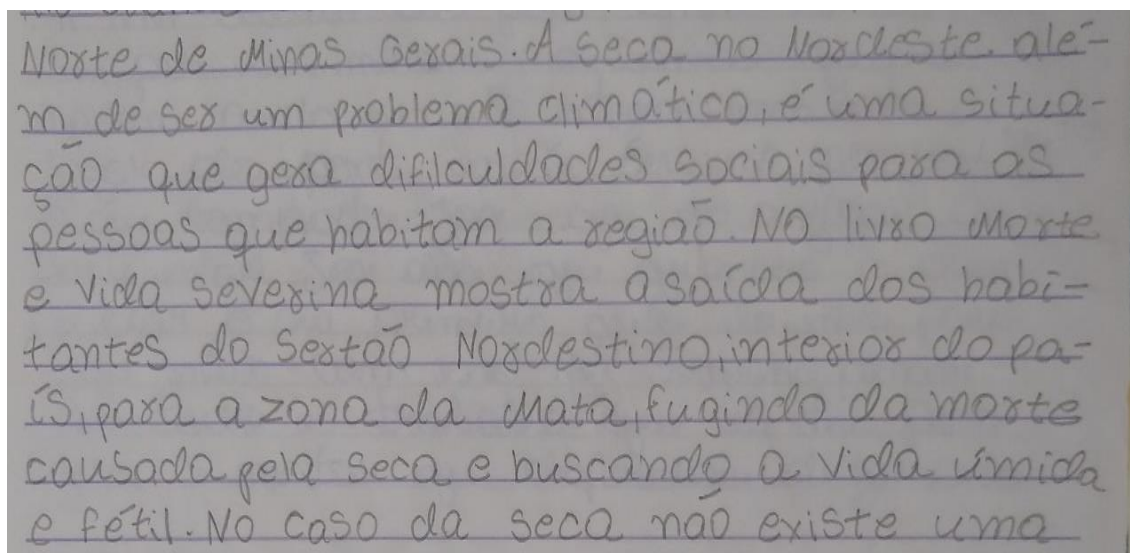 Norte de Minas Gerais. A seca no Nordeste. alé-
m de ser um problema climático, é uma situa-
ção que gera difilculdades sociais para as
pessoas que habitam a região. No livro Morte
e vida Severina mostra a saída dos habi-
tantes do Sertão Nordestino, interior do pa-
ís, para a zona da Mata, fugindo da morte
causada pela seca e buscando a vida úmida
e fétil. No caso da seca não existe uma